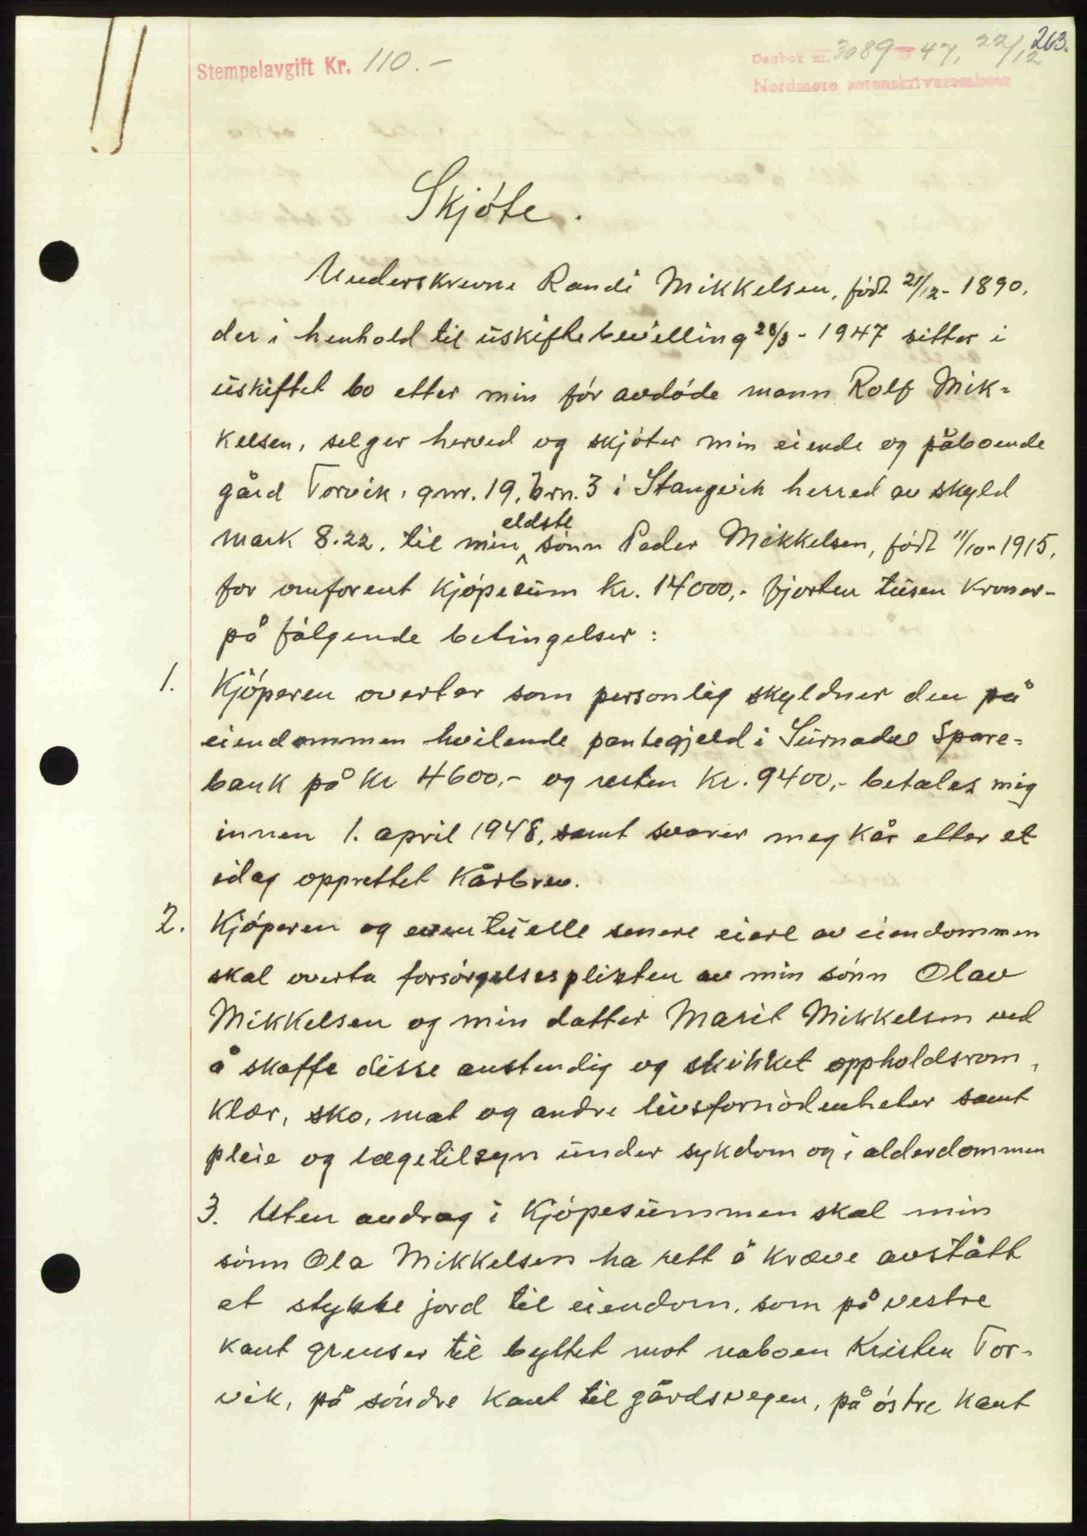 263.
Stempelavgift Kr. 110.-
Dagbok nr. 3089-47, 22/12
Nordmøre sorenskriverembete
Skjøte.
Underskrevne Randi Mikkelsen, født 21/12-1890,
der i henhold til uskiftebevilling 28/8-1947 sitter i
uskiftet bo etter min før avdøde mann Rolf Mik=
kelsen, selger herved og skjøter min eiende og påboende
gård Torvik, gnr. 19, brn. 3 i Stangvik herred av skyld
eldste
mark 8.22. til min sønn Peder Mikkelsen, født 11/10-1915,
for omforent kjøpesum kr. 14000,- fjorten tusen kroner-
på følgende betingelser:
1. Kjøperen overtar som personlig skyldner den på
eiendommen hvilende pantegjeld i Surnadal Spare=
bank på kr 4600,- og resten kr. 9400,- betales mig
innen 1. april 1948, samt svarer meg kår etter et
idag opprettet kårbrev.
2. Kjøperen og eventuelle senere eiere av eiendommen
skal overta forsørgelsesplikten av min sønn Olav
Mikkelsen og min datter Marit Mikkelsen ved
å skaffe disse anstendig og skikket oppholdsrom,
klær, sko, mat og andre livsfornødenheter samt
pleie og lægetilsyn under sykdom og i alderdommen
3. Uten avdrag i kjøpesummen skal min
sønn Ola Mikkelsen ha rett å kræve avstått
et stykke jord til eiendom, som på vestre
kant grenser til byttet mot naboen Kristen Tor-
vik, på søndre kant til gårdsvegen, på østre kant